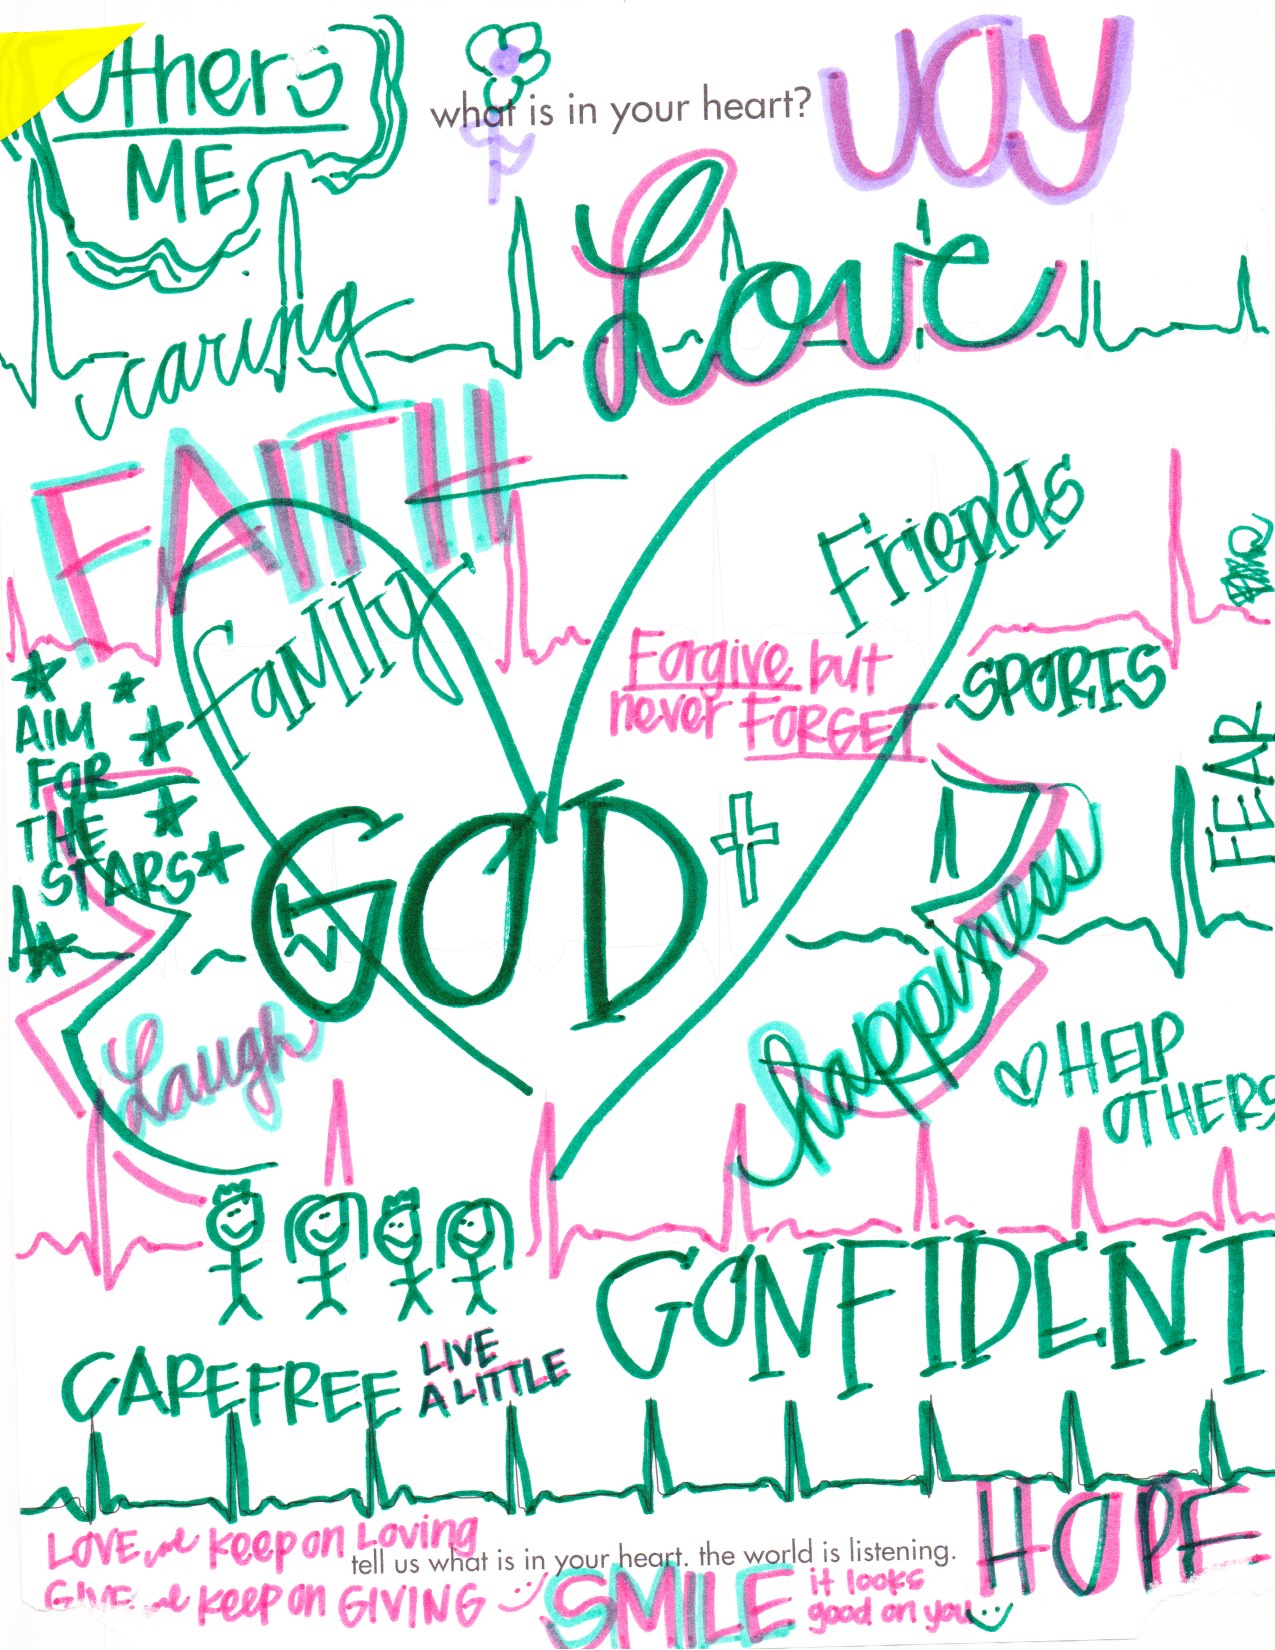 Others
ME
what is in your heart?
JOY
Love
caring
FAITH
Friends
family
Forgive but
never FORGET
SPORTS
AIM
FOR
THE
STARS
FEAR
GOD
happiness
Laugh
HELP
OTHERS
CONFIDENT
CAREFREE
LIVE
A LITTLE
HOPE
LOVE and keep on Loving
tell us what is in your heart. the world is listening.
GIVE and keep on GIVING
SMILE
it looks
good on you